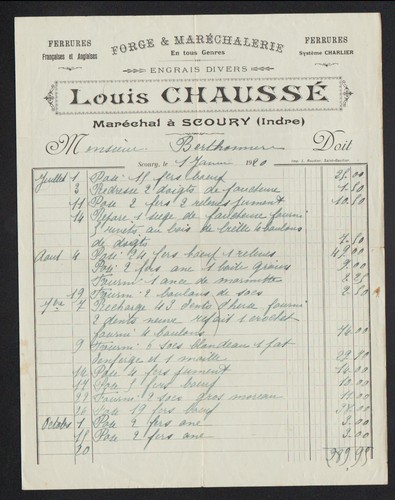 FERRURES
Françaises et Anglaises
FORGE & MARÉCHALERIE
En tous Genres
FERRURES
Système CHARLIER
ENGRAIS DIVERS
Louis CHAUSSÉ
Maréchal à SCOURY (Indre)
Monsieur Berthommier Doit
Scoury, le 1 Janvier 1920
Juillet 1 Posé 15 fers bœuf
3 Redressé 2 doigts de faucheuse 1.50
11 Posé 2 fers 2 relevés jument 10.50
14 Réparé 1 siège de faucheuse fourni
de doigts 7.50
Aout 4 Posé 24 fers bœuf 1 relevés 49.00
Posé 2 fers ane 1 boite graine 9.00
Fourni 1 ance de marmitte
19 Fourni 2 boulons de socs 2.50
7 Rechargé 43 dents d'herse fourni
2 dents neuve refait 1 crochet
fourni 4 boulons
9 Fourni 6 socs Blandeau 1 fat
1 maille
Posé 4 fers jument 16.00
Posé 5 fers bœuf 10.00
Fourni 2 socs gros moreau 11.00
Posé 19 fers bœuf
Octobre 1 Posé 2 fers ane 3.00
Posé 2 fers ane 3.00
20